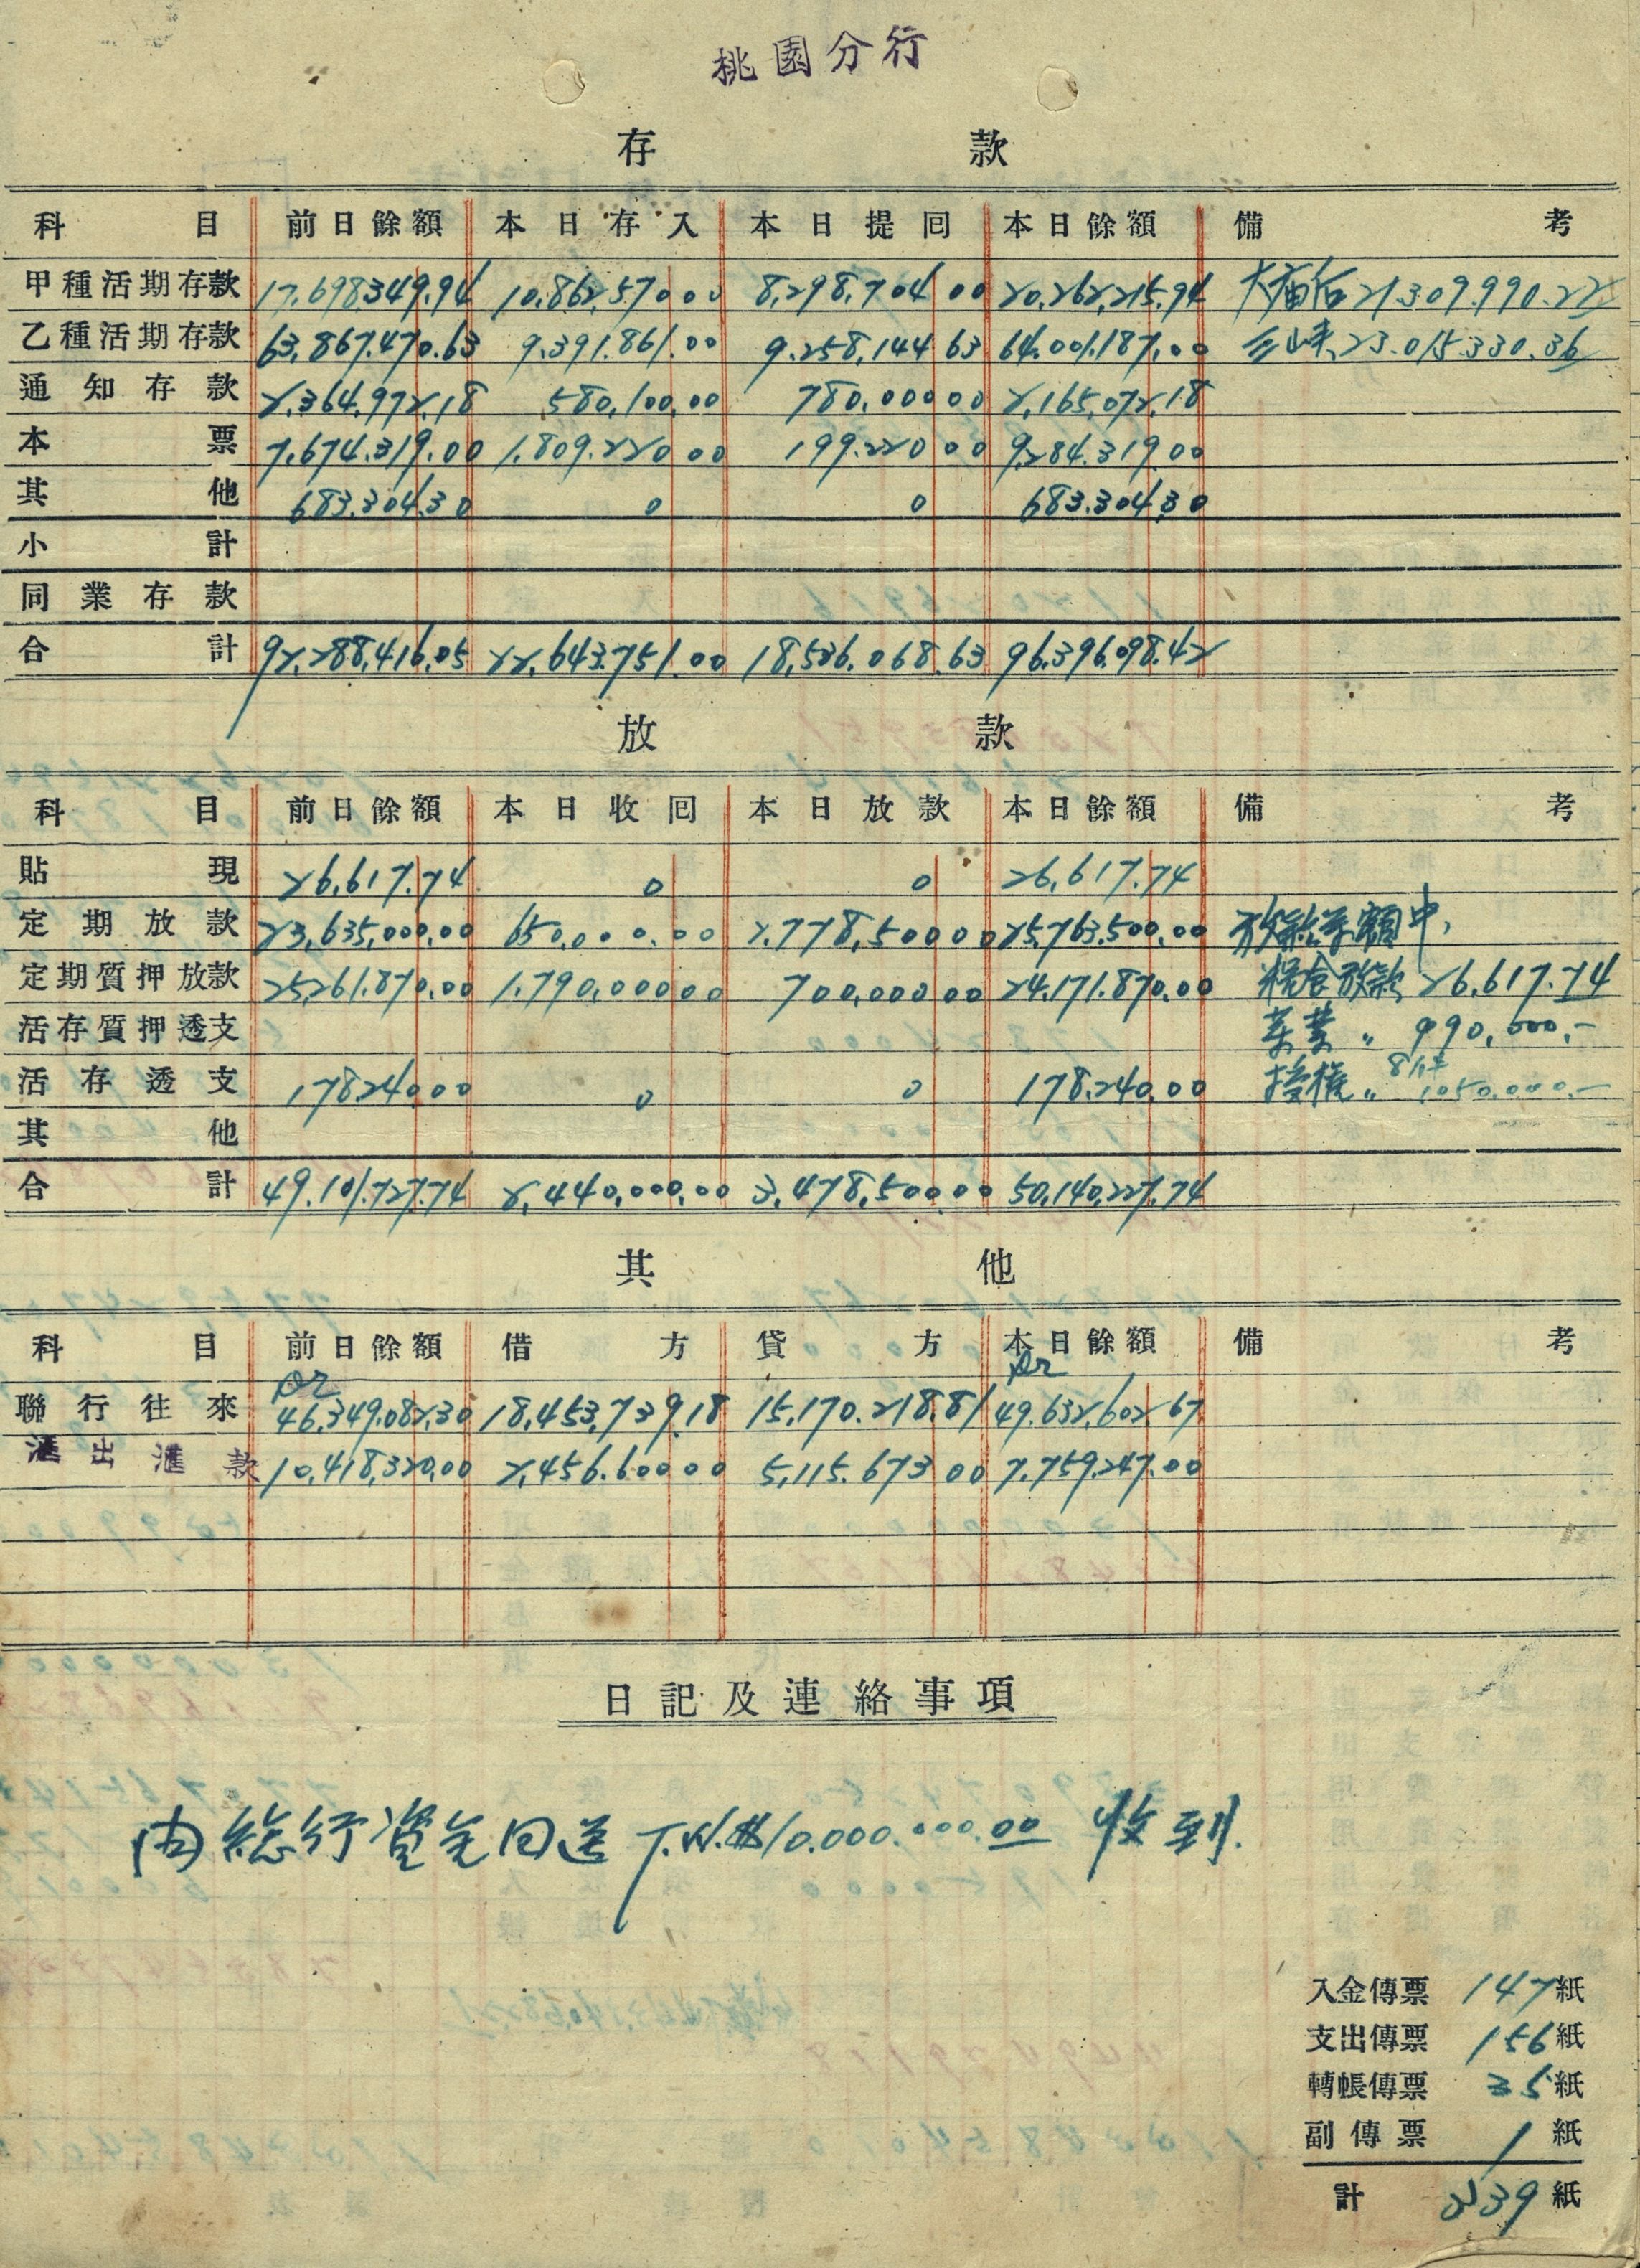 桃園分行
存款
科目 前日餘額 本日存入 本日提回 本日餘額 備考
甲種活期存款 17,698,349.94 10,862,570.00 8,298,704.00 20,262,215.94 21.309.990.22
乙種活期存款 63,867,470.63 9.391.861.00 9.258,144.63 64.001.187.00 三峡 23.015.330.36
通知存款 2,364,972.18 580,100.00 780,000.00 2,165,072.18
本票 7,674,319.00 1,809,220.00 199,220.00 9,284,319.00
其他 683.304.30 0 0 683.304.30
小計
同業存款
合計 92,288,416.05 22,643,751.00 18,536,068.63 96,396,098.42
放款
科目 前日餘額 本日收回 本日放款 本日餘額 備考
貼現 26,617.74 0 0 26,617.74
定期放款 23,635,000.00 650,000.00 2,778,500.00 25,763,500.00 放款余額中,
定期質押放款 25,261,870.00 1,790,000.00 700,000.00 24,171,870.00 糧食放款 26,617.74
活存質押透支 茶業〃 990,000.-
活存透支 178,240.00 0 0 178,240.00 授權〃 8件 1050.000.-
其他
合計 49,101,727.74 2,440,000.00 3,478,500.00 50,140,227.74
其他
科目 前日餘額 借方 貸方 本日餘額 備考
聯行往來 Dr 46,349,082.30 18,453,739.18 15,170,218.81 Dr 49,632,602.67
滙出滙款 10,418,320.00 2,456,600.00 5,115,673.00 7,759,247.00
日記及連絡事項
由総行資金回送 T.W.$10.000.000.00 收到.
入金傳票 147紙
支出傳票 156紙
轉帳傳票 35紙
副傳票 1紙
計 339紙